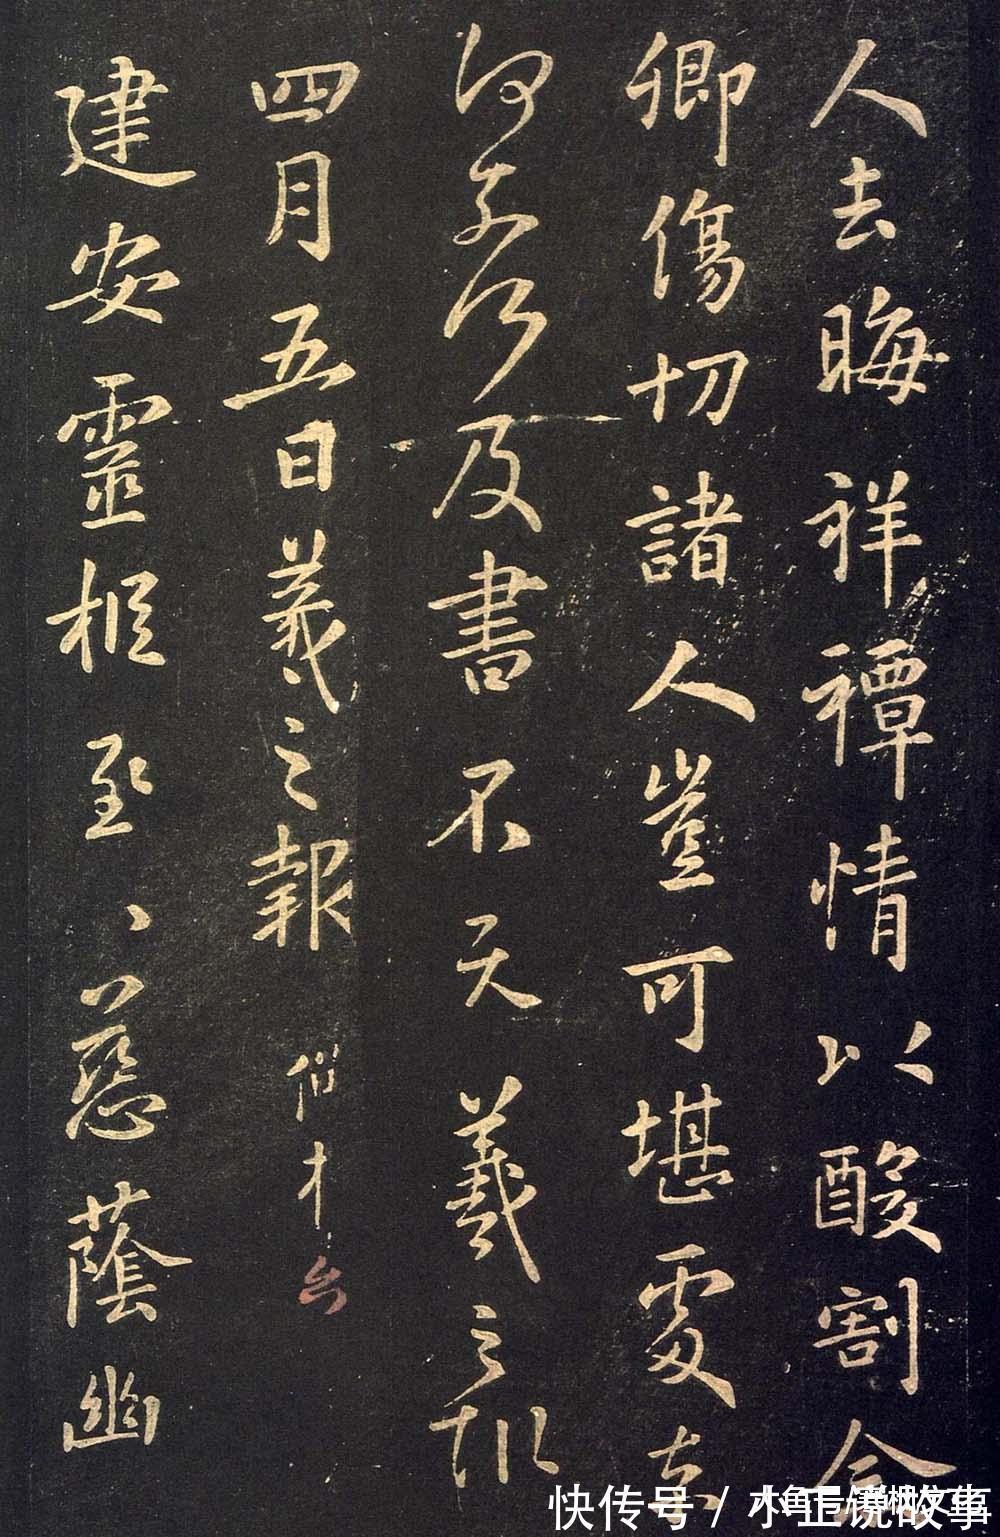 人去晦祥禫情以酸割念
卿傷切諸人豈可堪處奈
何奈何及書不羲之報
四月五日羲之報
建安靈柩至、慈蔭幽
快传号 / 小正说故事